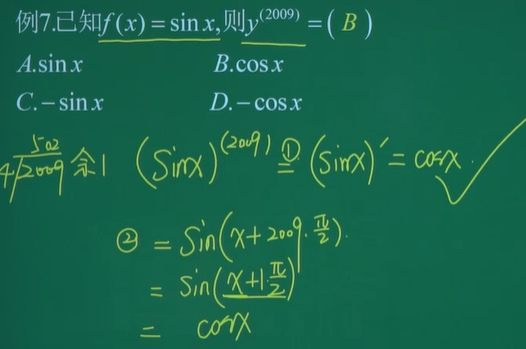 例7.已知f(x)=sin x,则y^(2009)=( B )
A.sin x B.cos x
C.-sin x D.-cos x
502
4√2009 余1 (Sinx)^(2009) ①= (Sinx)′ = cosx. ✓
② = Sin(x+2009·π/2).
= Sin(x+1·π/2)
= cosx